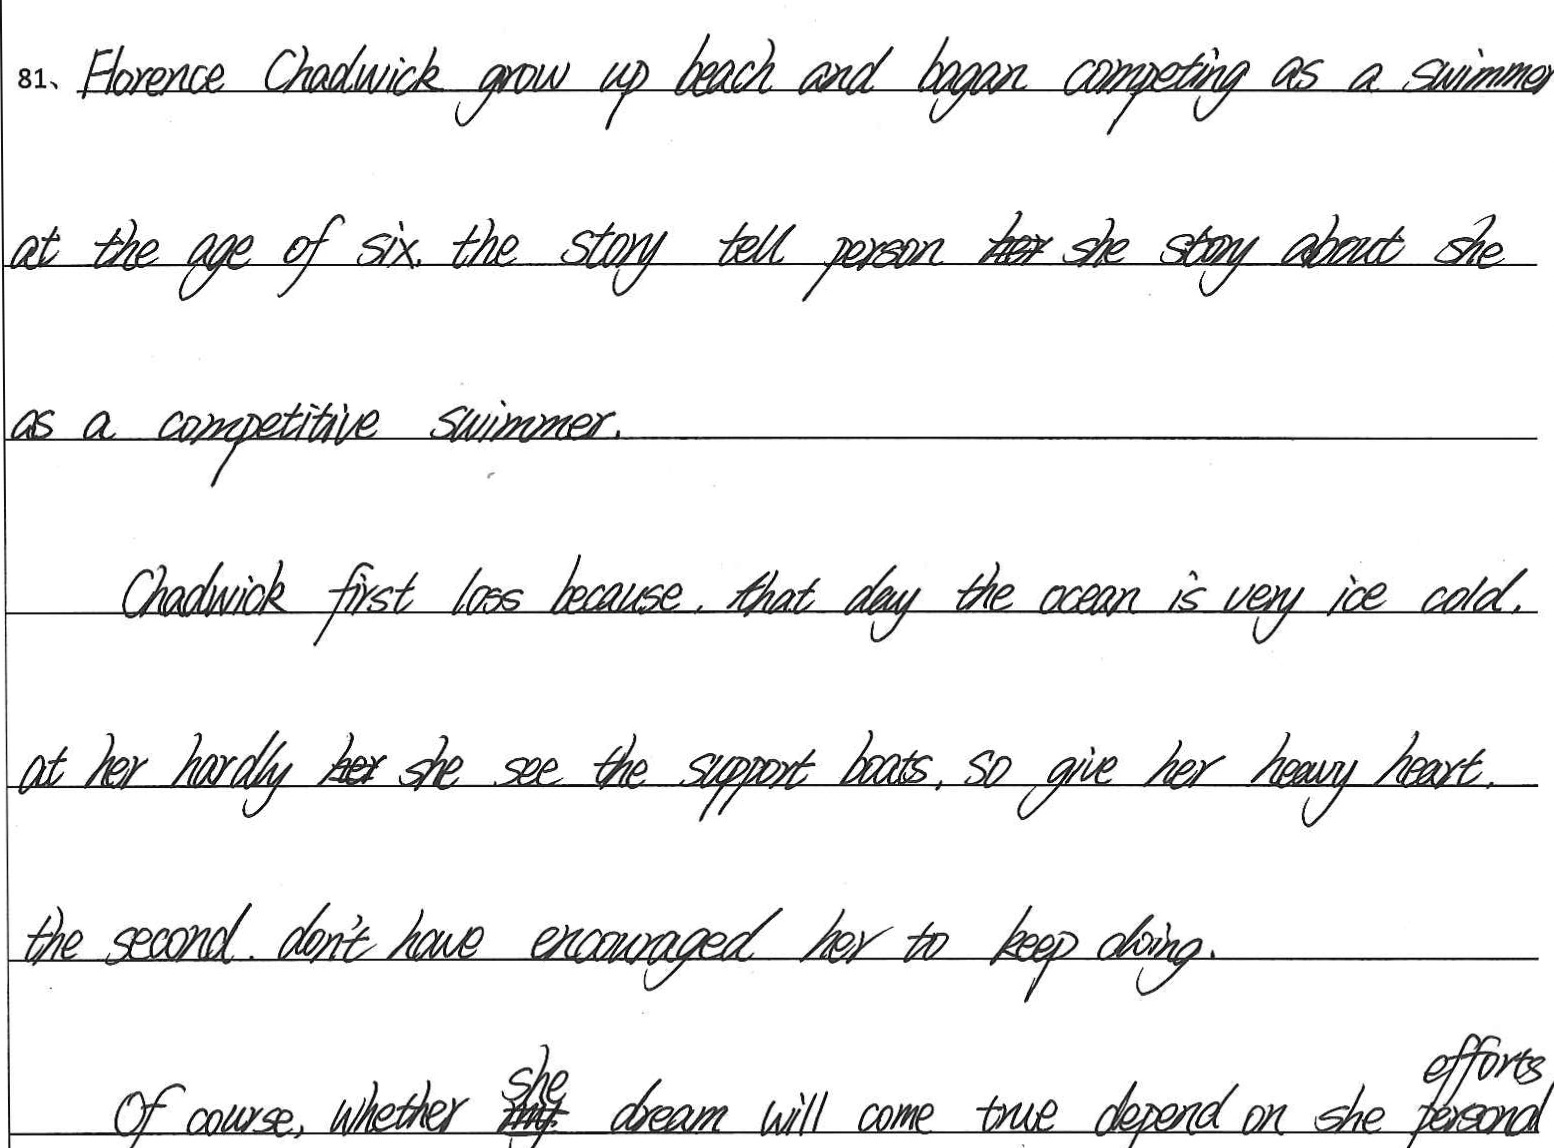 81、Florence Chadwick grow up beach and bagan competing as a swimmer
at the age of six. the story tell person her she story about she
as a competitive swimmer.
Chadwick first loss because. that day the ocean is very ice cold.
at her hardly her she see the support boats, so give her heavy heart.
the second. don't have encouraged her to keep doing.
she efforts
Of course, whether dream will come true depend on she personal